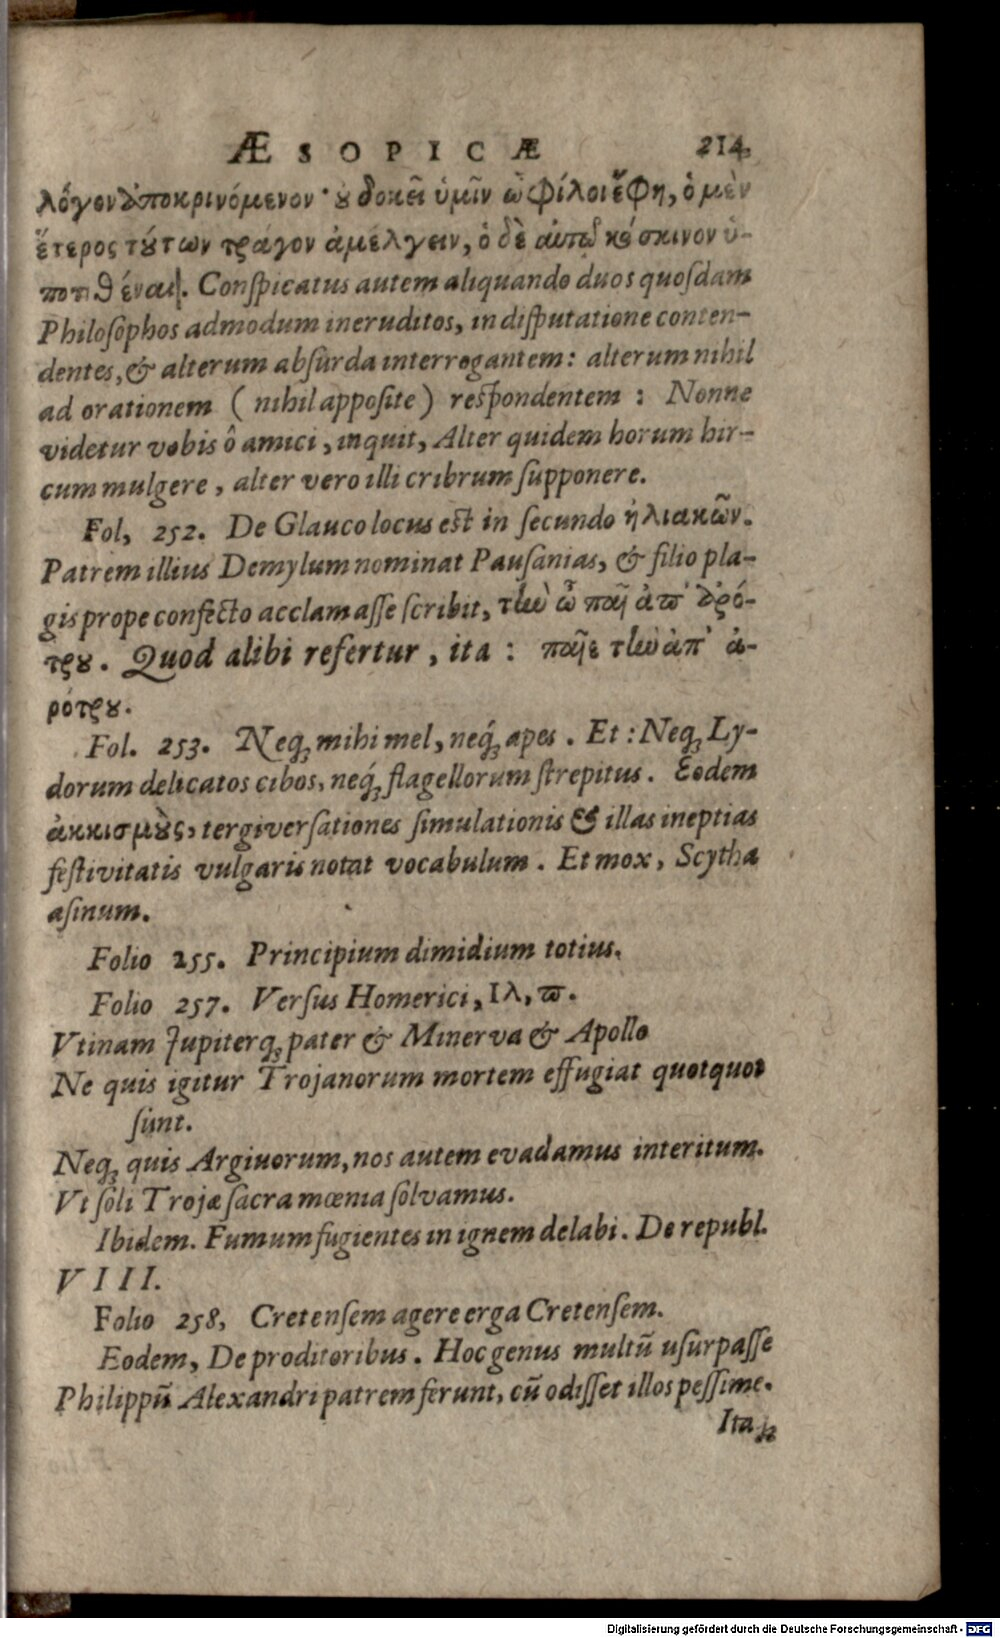 ÆSOPICÆ 214
λόγον ἀποκρινόμενον· ȣ̓ δοκεῖ ὑμῖν ὦ φίλοι ἔφη, ὁ μὲν
ἕτερος τȣ́των τράγον ἀμέλγειν, ὁ δὲ αὐτῷ κόσκινον ὑ-
ποτιθέναι. Conſpicatus autem aliquando duos quoſdam
Philoſophos admodum ineruditos, in diſputatione conten-
dentes, & alterum abſurda interrogantem: alterum nihil
ad orationem (nihil appoſite) reſpondentem: Nonne
videtur vobis ô amici, inquit, Alter quidem horum hir-
cum mulgere, alter vero illi cribrum ſupponere.
Fol, 252. De Glauco locus eſt in ſecundo ἡλιακῶν.
Patrem illius Demylum nominat Pauſanias, & filio pla-
gis prope confecto acclamaſſe ſcribit, τὴν ὦ παῖ ἀπ' ἀρό-
τρȣ. Quod alibi refertur, ita: παῖε τὴν ἀπ' ἀ-
ρότρȣ.
Fol. 253. Neq; mihi mel, neq́; apes. Et: Neq; Ly-
dorum delicatos cibos, neq́; flagellorum ſtrepitus. Eodem
ἀκκισμȣ̀ς, tergiverſationes ſimulationis & illas ineptias
feſtivitatis vulgaris notat vocabulum. Et mox, Scytha
aſinum.
Folio 255. Principium dimidium totius.
Folio 257. Verſus Homerici, Ιλ, ϖ.
Vtinam Jupiterq; pater & Minerva & Apollo
Ne quis igitur Trojanorum mortem effugiat quotquot
ſunt.
Neq; quis Argivorum, nos autem evadamus interitum.
Vt ſoli Trojæ ſacra mœnia ſolvamus.
Ibidem. Fumum fugientes in ignem delabi. De republ.
VIII.
Folio 258, Cretenſem agere erga Cretenſem.
Eodem, De proditoribus. Hoc genus multũ uſurpaſſe
Philippũ Alexandri patrem ferunt, cũ odiſſet illos peſſime.
Itaq;
Digitalisierung gefördert durch die Deutsche Forschungsgemeinschaft - DFG